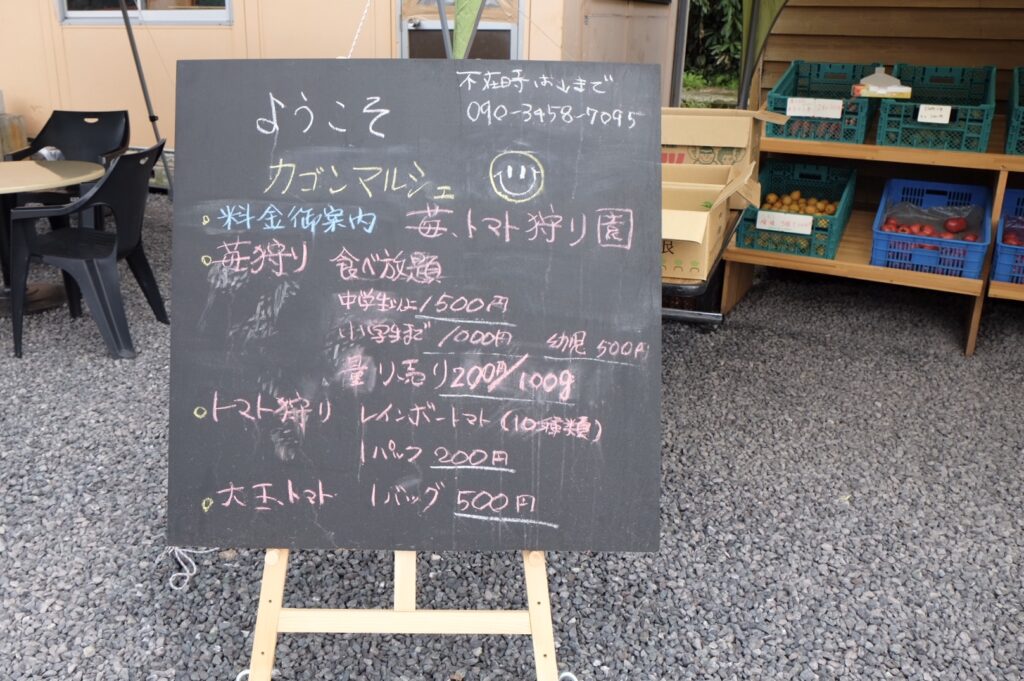 ようこそ
不在時
090-3458-7095
カゴンマルシェ
料金御案内 苺、トマト狩り園
苺狩り 食べ放題
中学生以上1500円
小学生まで 1000円 幼児 500円
量り売り200円/100g
トマト狩り レインボートマト(10種類)
1パック 200円
大玉トマト 1バッグ 500円